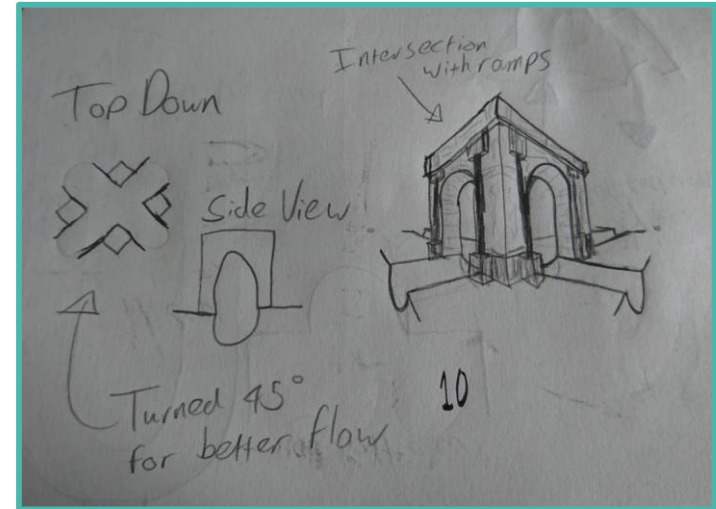 Top Down
Side View
Intersection
with ramps
10
Turned 45°
for better flow